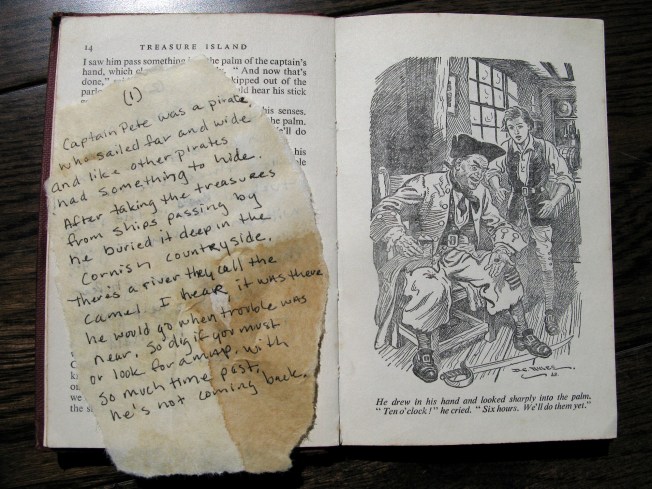 14 TREASURE ISLAND
I saw him pass something the palm of the captain's
hand, which “ And now that's
done,” out of the
hear his stick
his senses.
palm.
do
his
(1)
Captain Pete was a pirate,
who sailed far and wide
and like other pirates
had something to hide.
After taking the treasures
from ships passing by
he buried it deep in the
Cornish countryside.
There's a river they call the
camel. I hear, it was there
he would go when trouble was
near. So dig if you must
or look for a map, with
so much time past,
he's not coming back.
He drew in his hand and looked sharply into the palm.
“ Ten o'clock ! ” he cried. “ Six hours. We'll do them yet.”